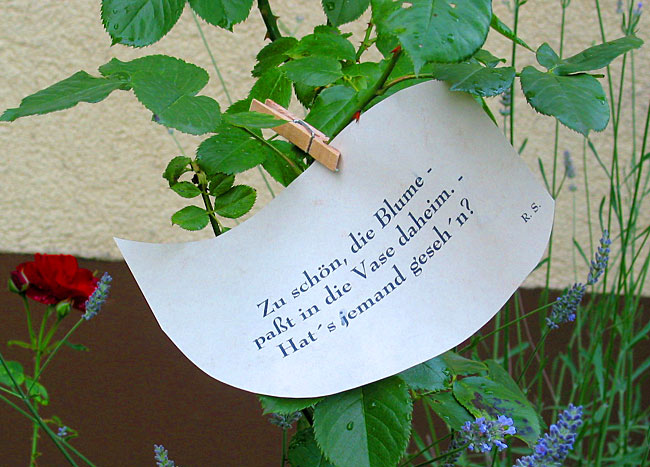 Zu schön, die Blume -
paßt in die Vase daheim. -
Hat´s jemand geseh´n?
R. S.